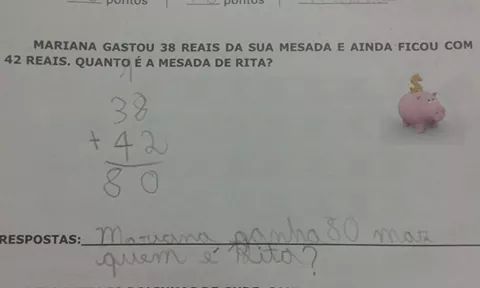 pontos
pontos
MARIANA GASTOU 38 REAIS DA SUA MESADA E AINDA FICOU COM
42 REAIS. QUANTO É A MESADA DE RITA?
1
38
+ 42
80
RESPOSTAS: Mariana ganha 80 mas
quem é Rita?